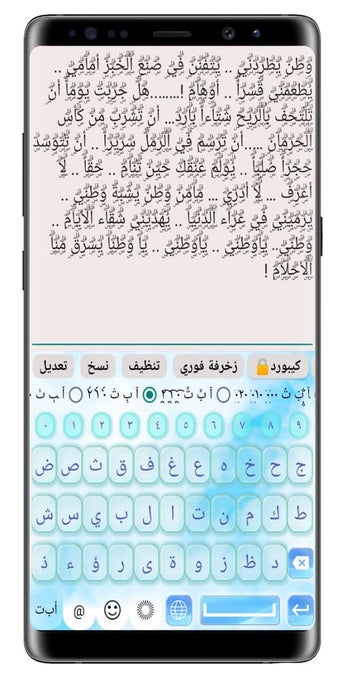 وَطَنٌ يَطْرُدُنِي .. يَتَفَنَّنُ فِي صُنْعِ الْخُبْزِ أَمَامِي ..
يُطْعِمُنِي قَسْراً .. أَوْهَامٌ !.......هَلْ جَرَبْتَ يَوْماً أَنْ
تَلْتَحِفَ بِالرِّيحِ شِتَاءاً بَارِدَ... أَنْ تَشْرَبَ مِنْ كَأْسِ
الْحِرْمَانِ ....أَنْ تَرْسُمَ فِي الرَّمْلِ سَرِيْراً .. أَنْ تَتَوَسَّدَ
حَجَراً صُلْباً .. يُؤْلِمُ عُنُقَكَ حِيْنَ تَنَامُ .. حَقاً .. لَا
أَعْرِفُ ... لَا أَدْرِي ... مَامِنْ وَطَنٍ يُشْبِهُ وَطَنِي ..
يَرْمِيْنِي فِي عَرَاءِ الدُّنْيَا .. يُهْدِيْنِي شَقَاءَ الْأَيَّامِ ..
وَطَنِي.. يَاوَطَنِي .. يَاوَطَنِي .. يَا وَطَناً يَسْرِقُ مِنَّا
الْأَحْلَامَ !
كيبورد زخرفة فوري تنظيف نسخ تعديل
٩ ٨ ٧ ٦ ٥ ٤ ٣ ٢ ١ ٠
ج ح خ ه ع غ ف ق ث ص ض
ط ك م ن ت ا ل ب ي س ش
د ظ ز و ة ى ر ؤ ء ذ
@ أب‌ت